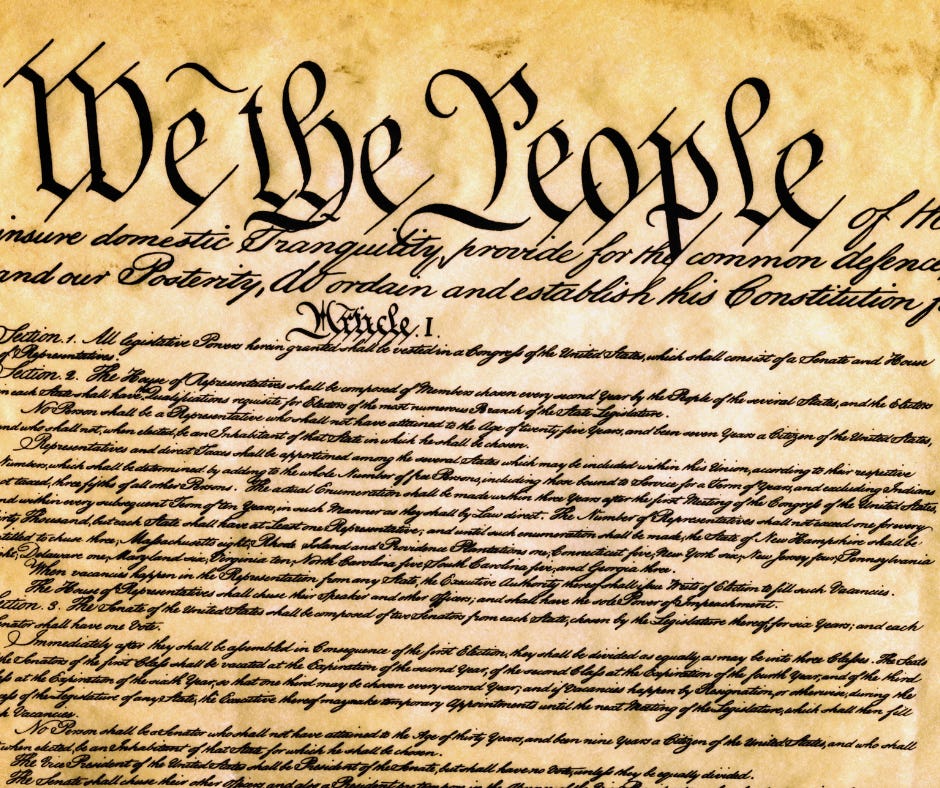 We the People of th
insure domestic Tranquility, provide for the common defence,
and our Posterity, do ordain and establish this Constitution f
Article. I.
Section. 1. All legislative Powers herein granted shall be vested in a Congress of the United States, which shall consist of a Senate and House
of Representatives.
Section. 2. The House of Representatives shall be composed of Members chosen every second Year by the People of the several States, and the Electors
in each State shall have the Qualifications requisite for Electors of the most numerous Branch of the State Legislature.
No Person shall be a Representative who shall not have attained to the Age of twenty five Years, and been seven Years a Citizen of the United States,
and who shall not, when elected, be an Inhabitant of that State in which he shall be chosen.
Representatives and direct Taxes shall be apportioned among the several States which may be included within this Union, according to their respective
Numbers, which shall be determined by adding to the whole Number of free Persons, including those bound to Service for a Term of Years, and excluding Indians
not taxed, three fifths of all other Persons. The actual Enumeration shall be made within three Years after the first Meeting of the Congress of the United States,
and within every subsequent Term of ten Years, in such Manner as they shall by Law direct. The Number of Representatives shall not exceed one for every
thirty Thousand, but each State shall have at Least one Representative; and until such enumeration shall be made, the State of New Hampshire shall be
entitled to chuse three, Massachusetts eight, Rhode Island and Providence Plantations one, Connecticut five, New York six, New Jersey four, Pennsylvania
eight, Delaware one, Maryland six, Virginia ten, North Carolina five, South Carolina five, and Georgia three.
When vacancies happen in the Representation from any State, the Executive Authority thereof shall issue Writs of Election to fill such Vacancies.
The House of Representatives shall chuse their Speaker and other Officers; and shall have the sole Power of Impeachment.
Section. 3. The Senate of the United States shall be composed of two Senators from each State, chosen by the Legislature thereof, for six Years; and each
Senator shall have one Vote.
Immediately after they shall be assembled in Consequence of the first Election, they shall be divided as equally as may be into three Classes. The Seats
of the Senators of the first Class shall be vacated at the Expiration of the second Year, of the second Class at the Expiration of the fourth Year, and of the third
Class at the Expiration of the sixth Year, so that one third may be chosen every second Year; and if Vacancies happen by Resignation, or otherwise, during the
Recess of the Legislature of any State, the Executive thereof may make temporary Appointments until the next Meeting of the Legislature, which shall then fill
such Vacancies.
No Person shall be a Senator who shall not have attained to the Age of thirty Years, and been nine Years a Citizen of the United States, and who shall
when elected, be an Inhabitant of that State for which he shall be chosen.
The Vice President of the United States shall be President of the Senate, but shall have no Vote, unless they be equally divided.
The Senate shall chuse their other Officers, and also a President pro tempore, in the Absence of the Vice President